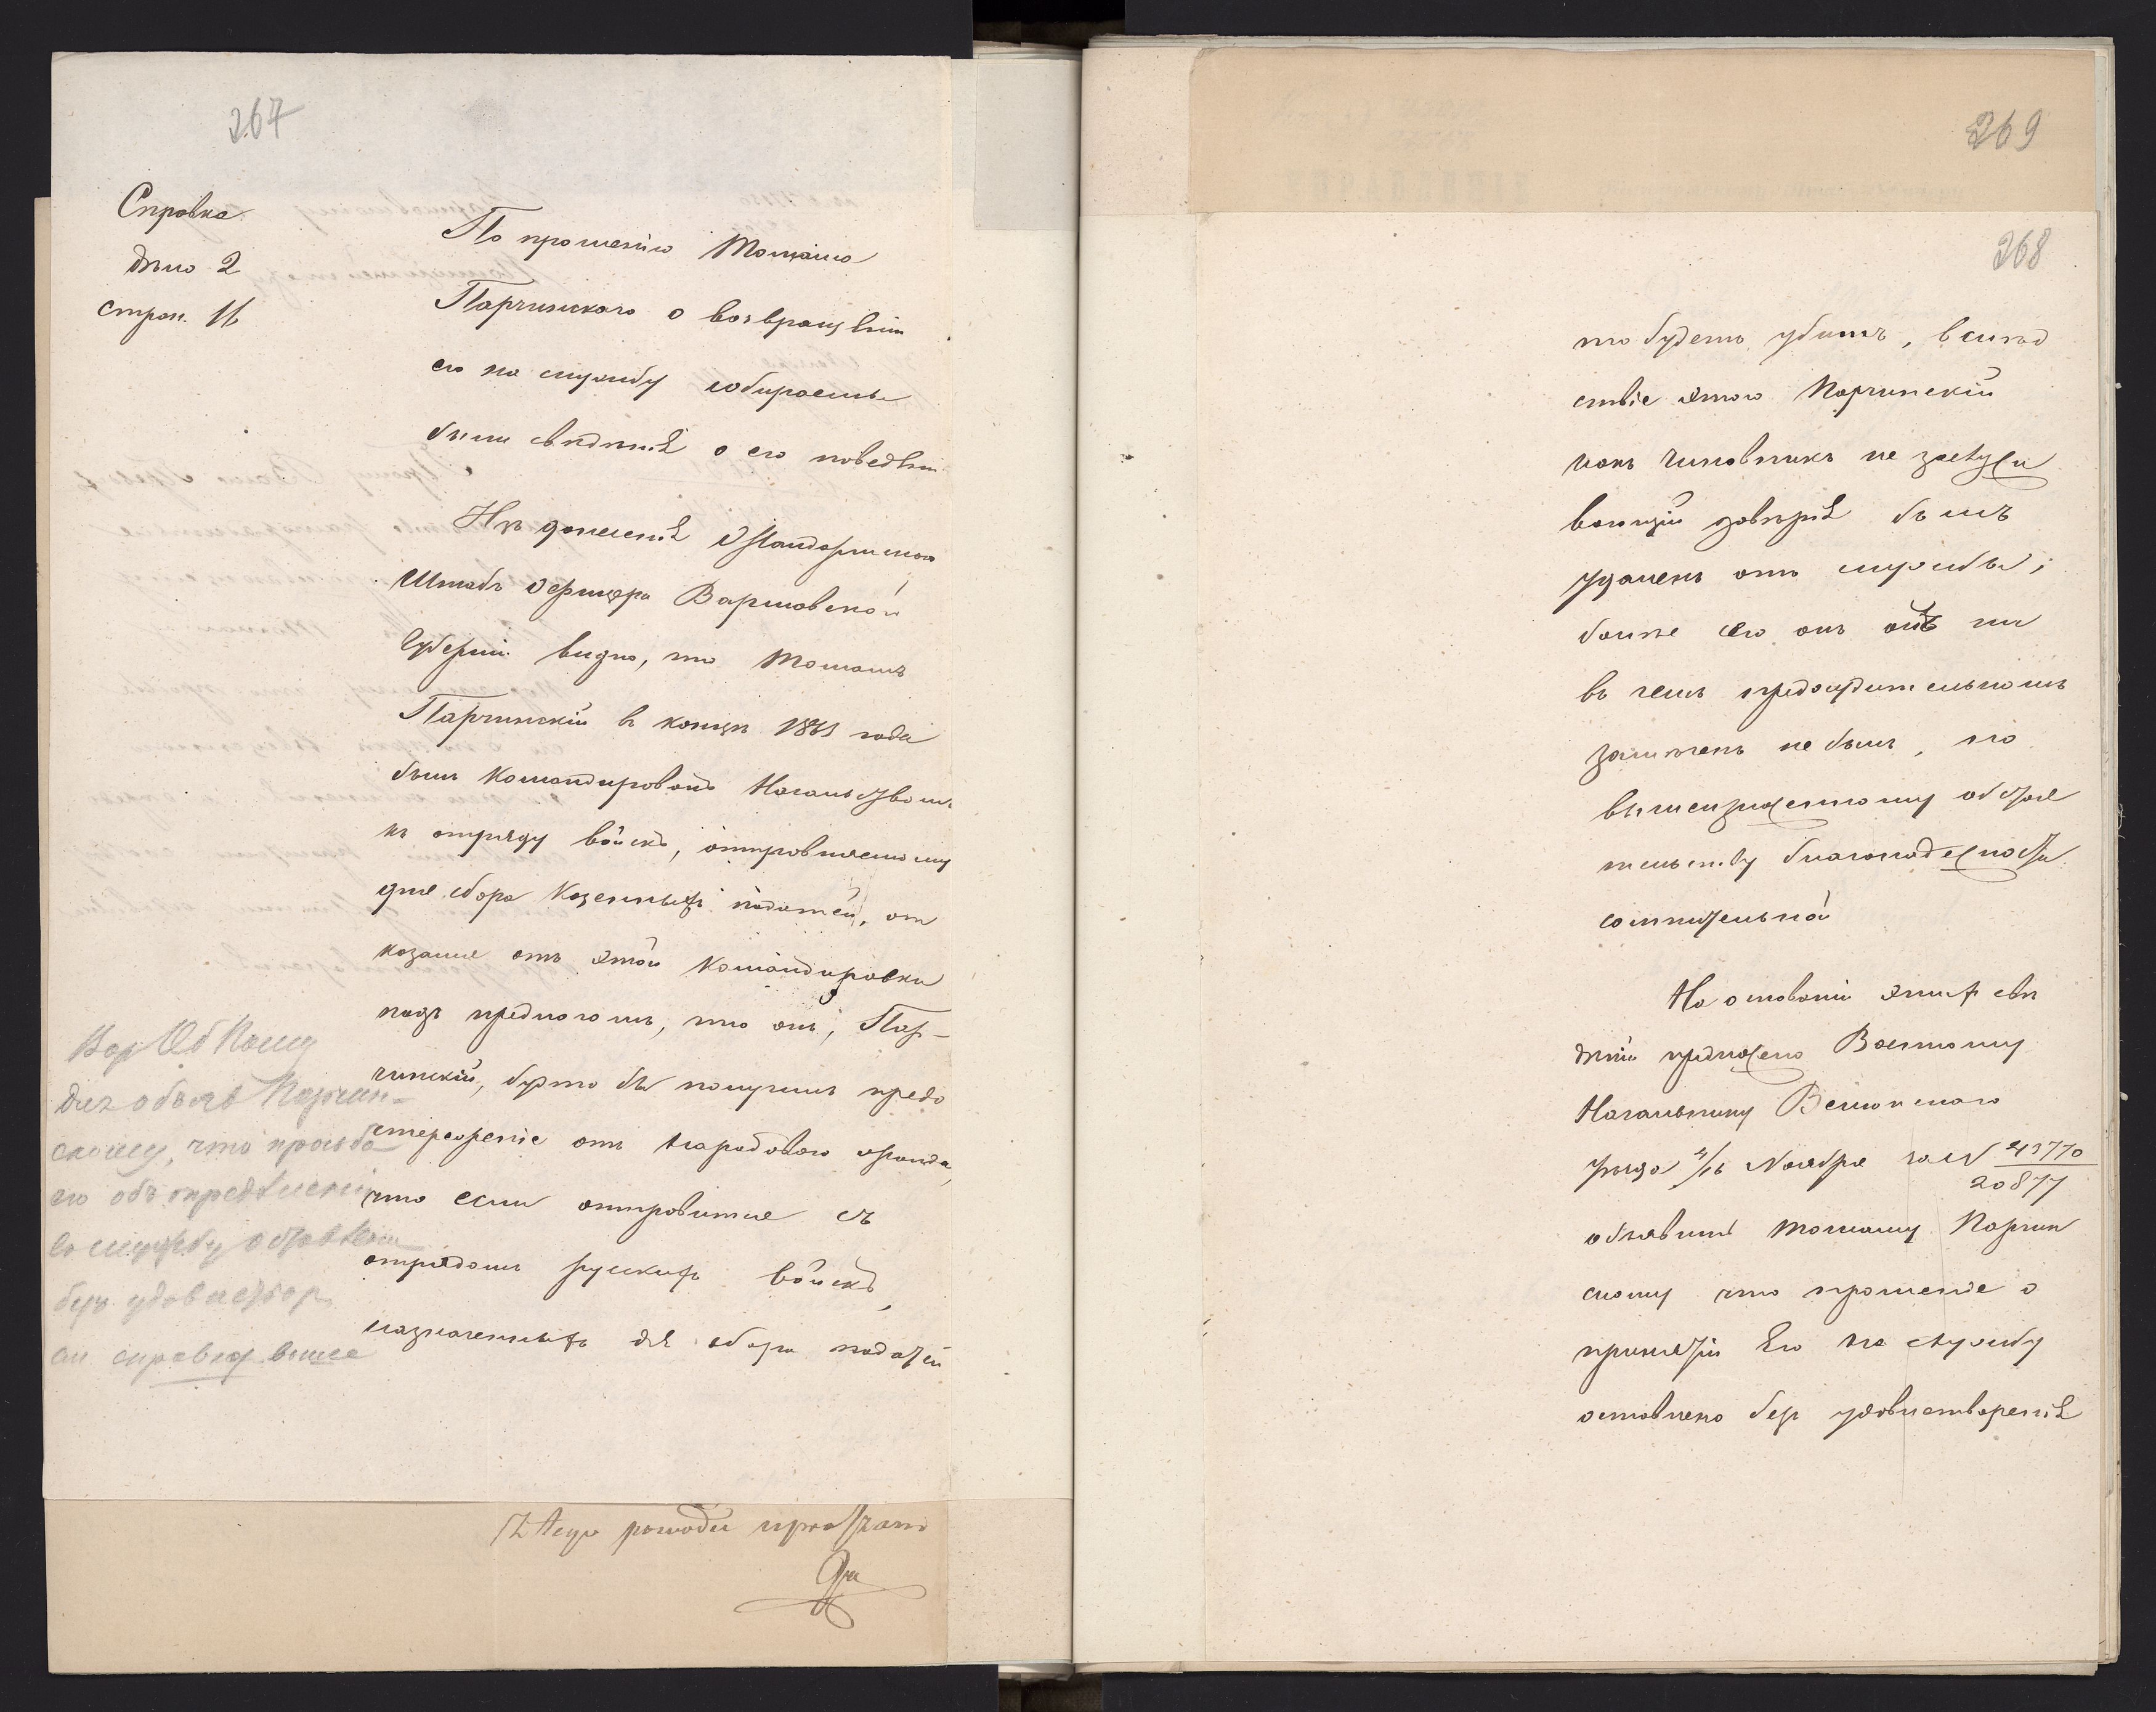 267
Справка
дѣло 2
стран. 16
По прошенію Томаша
Парчинскаго о возвращеніи
его на службу собираемы
были свѣдѣнія о его поведеніи
Изъ донесенія Жандармскаго
Штабъ Офицера Варшавской
Губерніи видно, что Томашъ
Парчинскій въ концѣ 1863 года
былъ командированъ Начальствомъ
къ отряду войскъ, отправляемому
для сбора казенныхъ податей, от
казался отъ этой командировки
подъ предлогомъ, что онъ, Пар-
чинскій, будто бы получилъ предо
стереженіе отъ народоваго жонда,
что если отправится съ
отрядомъ русскихъ войскъ,
назначенныхъ для сбора податей
объяв Парчин-
скому, что просьба
его объ опредѣленіи
въ службу оставлена
безъ удовлетвор
см справку выше
Z tego powodu upraszam
269
268
то будетъ убитъ, вслѣд
ствіе этого Парчинскій
какъ чиновникъ не заслужи
вающій довѣрія былъ
удаленъ отъ службы;
болѣе сего онъ ни
въ чемъ предосудительномъ
замѣченъ не былъ, по
вышеизложенному обстоя
тельству благонадежность
сомнительна
На основаніи этихъ свѣ
дѣній предложено Военному
Начальнику Велюнскаго
уѣзда 4/16 Ноября за № 43770
20877
объявить Томашу Парчин
скому что прошеніе о
принятіи его на службу
оставлено безъ удовлетворенія